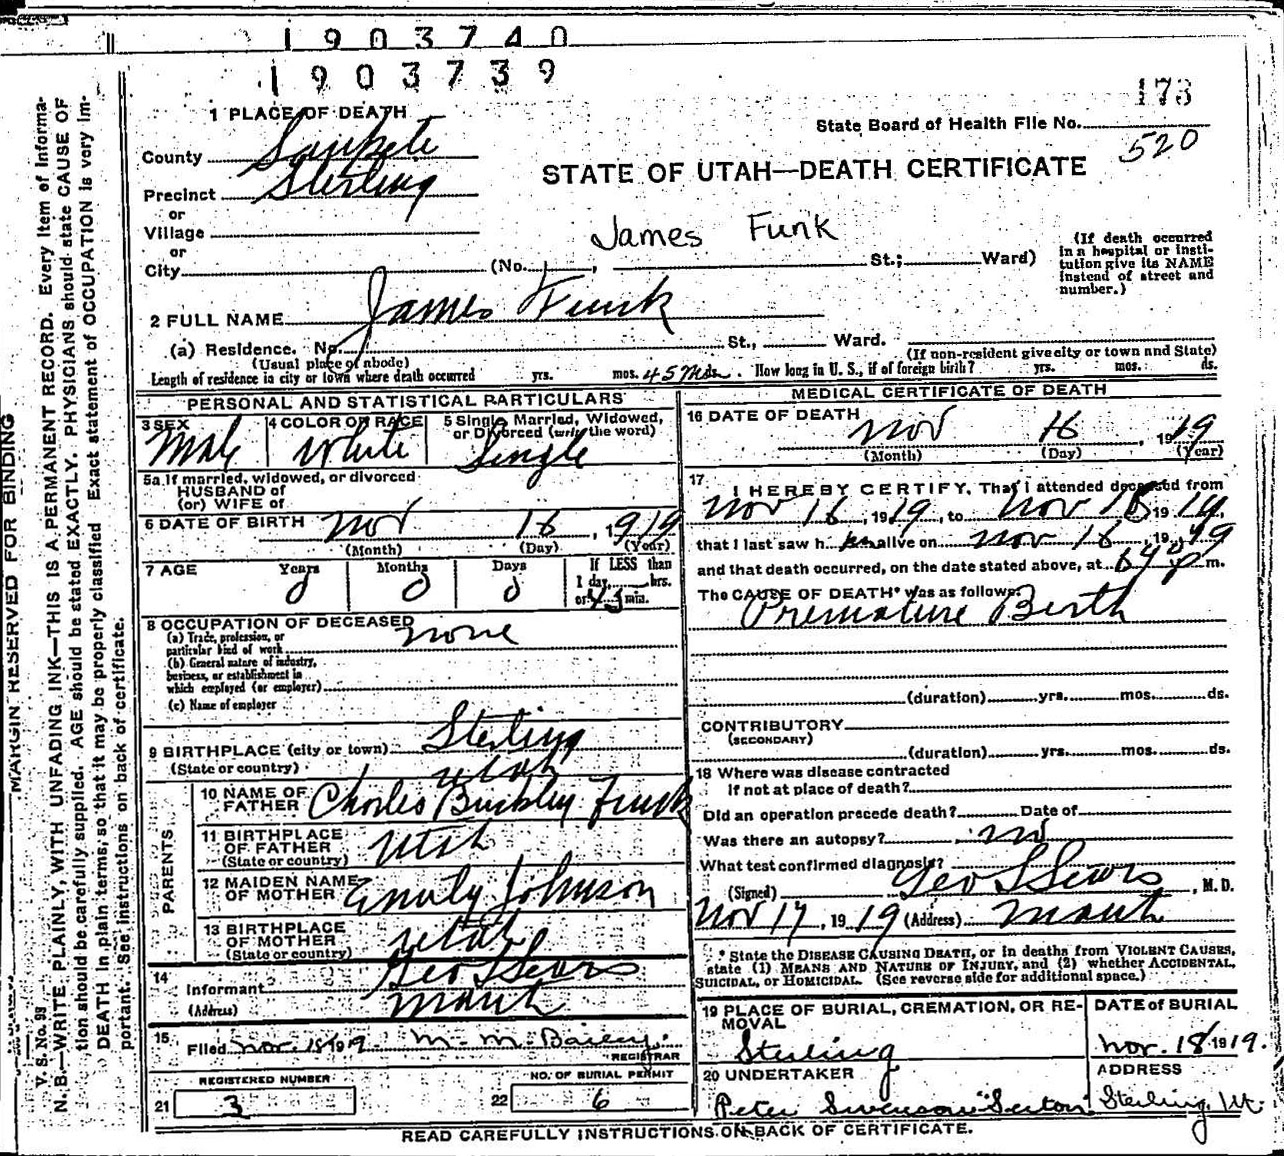 1903740
1903739
173
1 PLACE OF DEATH
State Board of Health File No.
520
County Sanpete
STATE OF UTAH—DEATH CERTIFICATE
Precinct Sterling
or
Village
James Funk
or
City (No. , St.; Ward)
(If death occurred in a hospital or institution give its NAME instead of street and number.)
2 FULL NAME James Funk
(a) Residence. No. St., Ward.
(Usual place of abode) (If non-resident give city or town and State)
Length of residence in city or town where death occurred yrs. mos. 45 Min. How long in U. S., if of foreign birth? yrs. mos. ds.
PERSONAL AND STATISTICAL PARTICULARS
3 SEX Male
4 COLOR OR RACE White
5 Single, Married, Widowed, or Divorced (write the word) Single
5a If married, widowed, or divorced
HUSBAND of
(or) WIFE of
6 DATE OF BIRTH Nov 16, 1919
(Month) (Day) (Year)
7 AGE Years 0 Months 0 Days 0 If LESS than 1 day, hrs. or 43 min.
8 OCCUPATION OF DECEASED none
(a) Trade, profession, or particular kind of work
(b) General nature of industry, business, or establishment in which employed (or employer)
(c) Name of employer
9 BIRTHPLACE (city or town) Sterling
(State or country) Utah
PARENTS
10 NAME OF FATHER Charles Buckley Funk
11 BIRTHPLACE OF FATHER Utah
(State or country)
12 MAIDEN NAME OF MOTHER Emily Johnson
13 BIRTHPLACE OF MOTHER Utah
(State or country)
14 Informant Geo L Sears
(Address) Manti
15 Filed Nov. 18 1919 M. M. Bailey.
REGISTRAR
REGISTERED NUMBER
21 3
NO. OF BURIAL PERMIT
22 6
MEDICAL CERTIFICATE OF DEATH
16 DATE OF DEATH Nov 16, 1919
(Month) (Day) (Year)
17 I HEREBY CERTIFY, That I attended deceased from
Nov 16, 1919, to Nov 16 1919,
that I last saw h im alive on Nov 16, 1919
and that death occurred, on the date stated above, at m.
The CAUSE OF DEATH* was as follows:
Premature Birth
(duration) yrs. mos. ds.
CONTRIBUTORY
(SECONDARY)
(duration) yrs. mos. ds.
18 Where was disease contracted
if not at place of death?
Did an operation precede death? Date of
Was there an autopsy? no
What test confirmed diagnosis?
(Signed) Geo L Sears, M.D.
Nov 17, 1919 (Address) Manti
* State the DISEASE CAUSING DEATH, or in deaths from VIOLENT CAUSES,
state (1) MEANS AND NATURE OF INJURY, and (2) whether ACCIDENTAL,
SUICIDAL, or HOMICIDAL. (See reverse side for additional space.)
19 PLACE OF BURIAL, CREMATION, OR REMOVAL
Sterling
DATE of BURIAL
Nov. 18 1919.
20 UNDERTAKER
Peter Swenson "Sexton"
ADDRESS
Sterling, Ut.
READ CAREFULLY INSTRUCTIONS ON BACK OF CERTIFICATE.
MARGIN RESERVED FOR BINDING
V. S. No. 99
N. B.—WRITE PLAINLY, WITH UNFADING INK—THIS IS A PERMANENT RECORD. Every item of informa-
tion should be carefully supplied. AGE should be stated EXACTLY. PHYSICIANS should state CAUSE OF
DEATH in plain terms, so that it may be properly classified. Exact statement of OCCUPATION is very im-
portant. See instructions on back of certificate.